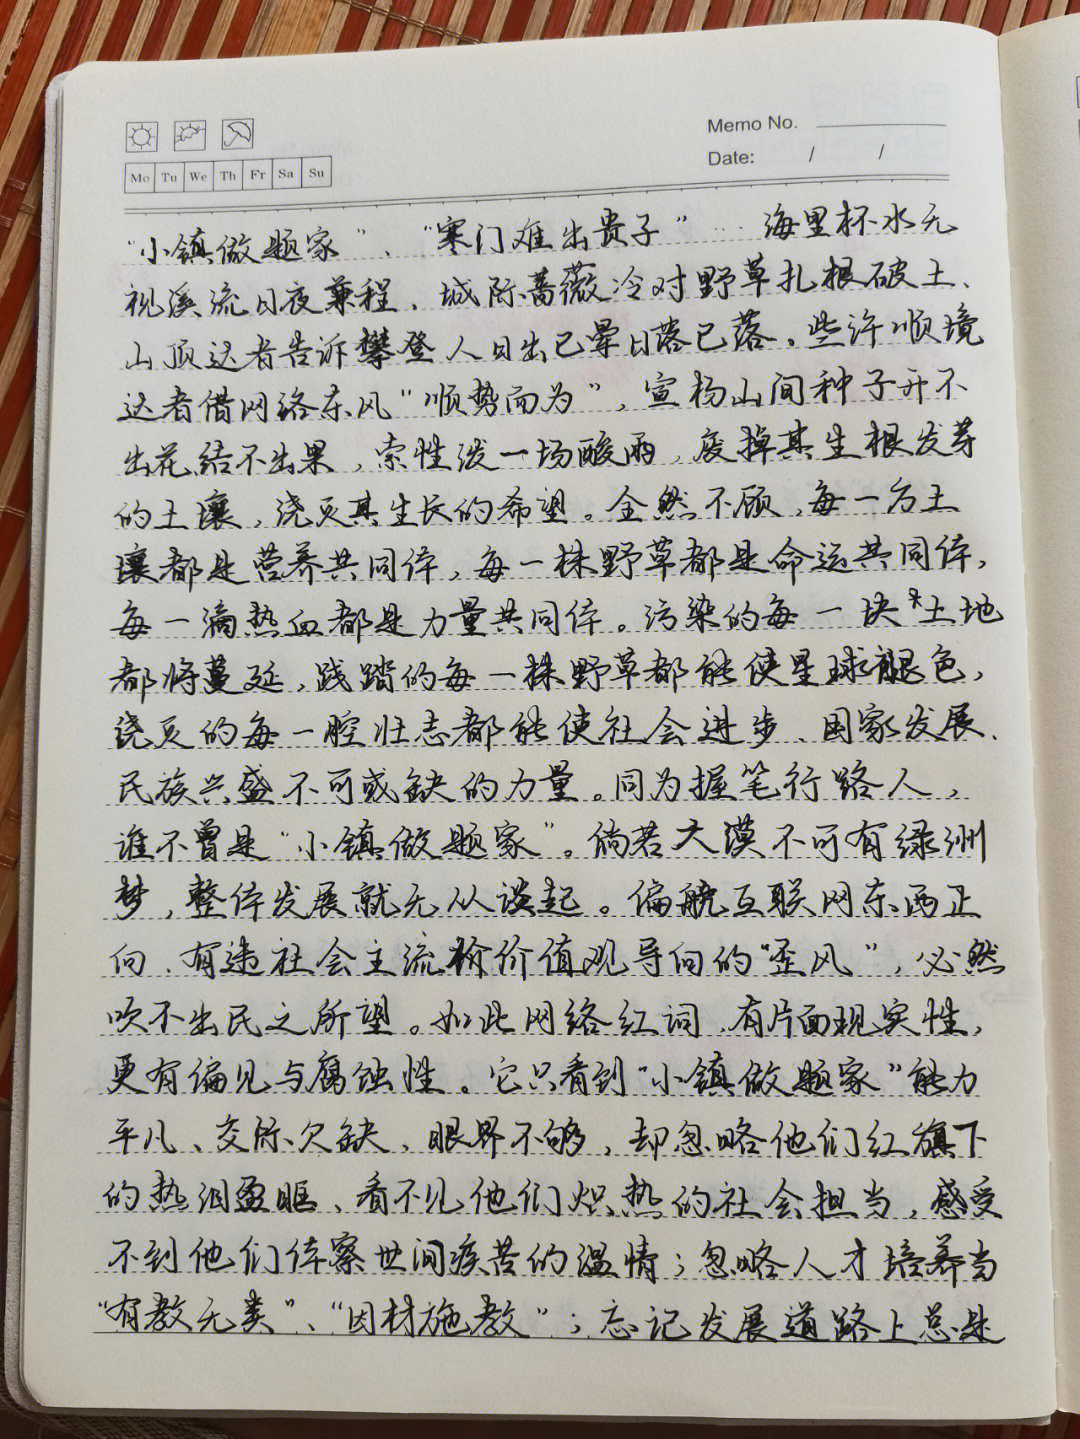 Memo No.
Date: / /
Mo Tu We Th Fr Sa Su
“小镇做题家”、“寒门难出贵子”…… 海里杯水无
视溪流日夜兼程、城际蔷薇冷对野草扎根破土、
山顶达者告诉攀登人日出已晕日落已落。些许顺境
达者借网络东风“顺势而为”，宣杨山间种子开不
出花结不出果，索性泼一场酸雨，废掉其生根发芽
的土壤，浇灭其生长的希望。全然不顾，每一方土
壤都是营养共同体，每一株野草都是命运共同体，
每一滴热血都是力量共同体。污染的每一块土地
都将蔓延，践踏的每一株野草都能使星球褪色，
浇灭的每一腔壮志都能使社会进步、国家发展、
民族兴盛不可或缺的力量。同为握笔行路人，
谁不曾是“小镇做题家”。倘若大漠不可有绿洲
梦，整体发展就无从谈起。偏航互联网东西正
向、有违社会主流价值观导向的“歪风”，必然
吹不出民之所望。如此网络红词，有片面现实性，
更有偏见与腐蚀性。它只看到“小镇做题家”能力
平凡、交际欠缺、眼界不够，却忽略他们红旗下
的热泪盈眶、看不见他们炽热的社会担当，感受
不到他们体察世间疾苦的温情；忽略人才培养当
“有教无类”、“因材施教”；忘记发展道路上总是